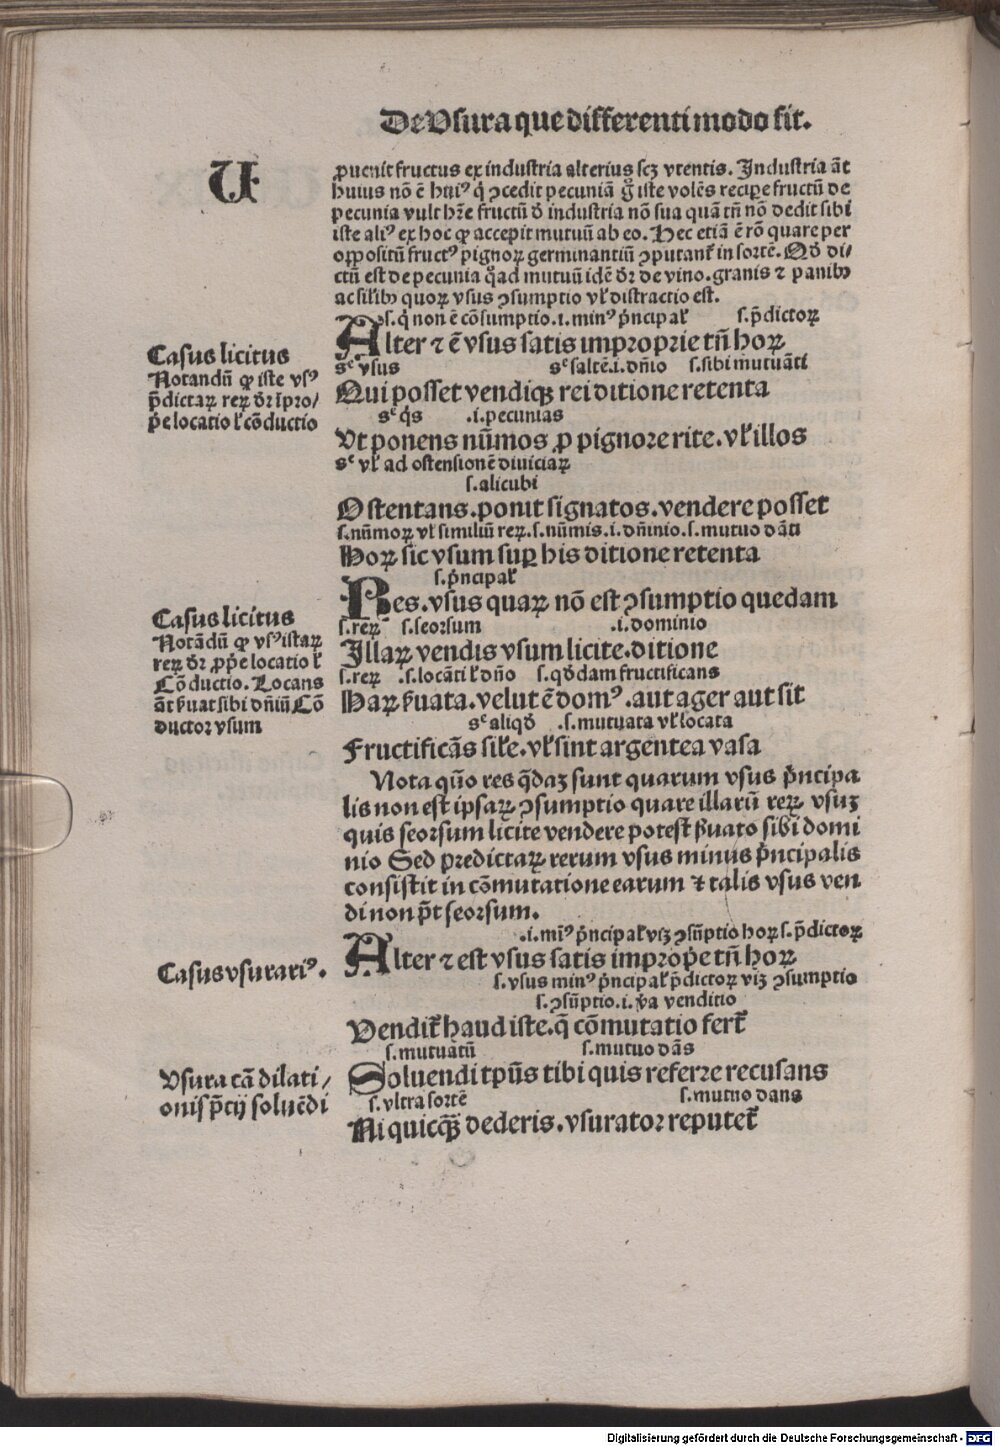 De Vsura que differenti modo fit.
V
ꝓuenit fructus ex industria alterius scꝫ vtentis. Industria āt
huius nō ē huiꝰ q̄ ꝓcedit pecuniā g̊ iste volēs recipe fructū de
pecunia vult hr̄e fructū d̓ industria nō sua quā tn̄ nō dedit sibi
iste aliꝰ ex hoc ꝙ accepit mutuū ab eo. Hec etiā ē rō quare per
oppositū fructꝰ pignoꝝ germinantiū ↄputant̄ in sortē. Qd̓ di/
ctū est de pecunia q̊ad mutuū idē dr̄ de vino. granis ⁊ panibꝰ
ac sil̓ibꝰ quoꝝ vsus ↄsumptio vl̓ distractio est.
s. q̄ non ē cōsumptio. i. minꝰ p̄ncipal̓ s. p̄dictoꝝ
Alter ⁊ ē vsus satis improprie tn̄ hoꝝ
Casus licitus
Notandū ꝙ iste vsꝰ
p̄dictaꝝ reꝝ dr̄ īpro/
p̄e locatio l̓ cōductio
sᶜ vsus sᶜ saltē. i. dn̄io s. sibi mutuāti
Qui posset vendiqꝫ rei ditione retenta
sᶜ q̄s .i. pecunias
Vt ponens nūmos ꝓ pignore rite. vl̓ illos
sᶜ vl̓ ad ostensionē diuiciaꝝ
s. alicubi
Ostentans. ponit signatos. vendere posset
s. nūmoꝝ vl̓ similiū reꝝ. s. nūmis. i. dn̄inio. s. mutuo dāti
Hoꝝ sic vsum suꝑ his ditione retenta
s. p̄ncipal̓
Res. vsus quaꝝ nō est ↄsumptio quedam
Casus licitus
Notādū ꝙ vsꝰ istaꝝ
reꝝ dr̄ ꝓp̄e locatio l̓
Cōductio. Locans
āt ẜuat sibi dn̄iū Cō
ductor vsum
s. reꝝ s. seorsum .i. dominio
Illaꝝ vendis vsum licite. ditione
s. reꝝ .s. locāti l̓ dn̄o s. qd̓dam fructificans
Haꝝ ẜuata. velut ē domꝰ. aut ager aut sit
sᶜ aliqd̓ .s. mutuata vl̓ locata
Fructificās sil̓e. vl̓ sint argentea vasa
Nota quō res q̄daꝫ sunt quarum vsus p̄ncipa
lis non est ipsaꝝ ↄsumptio quare illarū reꝝ vsuꝫ
quis seorsum licite vendere potest ẜuato sibi domi
nio Sed predictaꝝ rerum vsus minus p̄ncipalis
consistit in cōmutatione earum ⁊ talis vsus ven
di non pōt seorsum.
.i. miꝰ p̄ncipal̓ vꝫ ↄsūptio hoꝝ s. p̄dictoꝝ
Alter ⁊ est vsus satis improp̄e tn̄ hoꝝ
Casus vsurariꝰ.
s. vsus minꝰ p̄ncipal̓ p̄dictoꝝ viꝫ ↄsumptio
s. ↄsūptio. i. v̄a venditio
Vendit̄ haud iste. q̄ cōmutatio fert̄
s. mutuātū s. mutuo dās
Soluendi tp̄us tibi quis referre recusans
Vsura cā dilati/
onis p̄cij soluēdi
s. vltra sortē s. mutuo dans
Ni quicqꝫ dederis. vsurator reputet̄
Digitalisierung gefördert durch die Deutsche Forschungsgemeinschaft - DFG